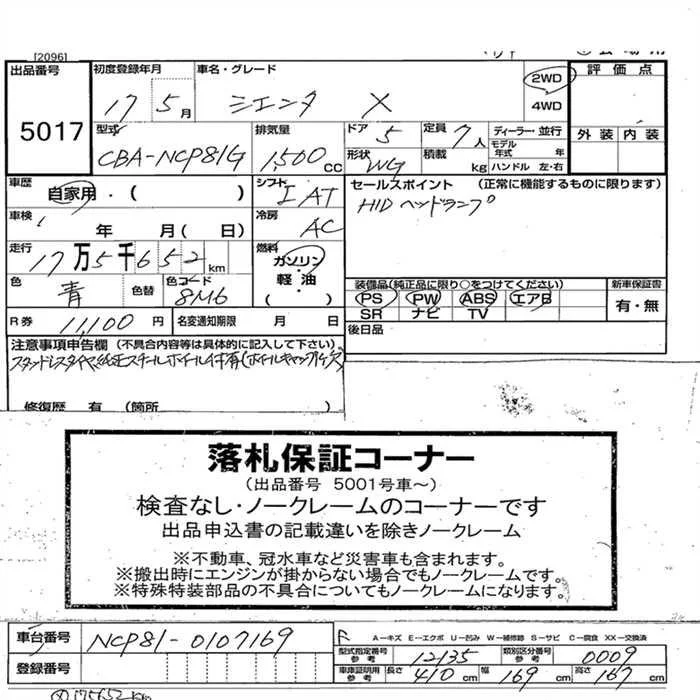 [2096]
出品番号 初度登録年月 車名・グレード 2WD 評価点
5017 17 5月 シエンタ X 4WD 外装 内装
型式 排気量 ドア 定員 ディーラー・並行
CBA-NCP81G 1,500cc 5 7人 モデル年式 年
形状 WG 積載 kg ハンドル 左・右
車歴 自家用・( ) シフト IAT セールスポイント (正常に機能するものに限ります)
車検 年 月( 日) 冷房 AC HIDヘッドランプ
走行 17万5千652km 燃料 ガソリン・軽油・( )
色 青 色替 色コード 8M6 装備品(純正品に限り○をつけてください) 新車保証書
PS PW ABS エアB 有・無
SR ナビ TV
R券 11,100円 名変通知期限 月 日 後日品
注意事項申告欄 (不具合内容等は具体的に記入して下さい)
スタッドレスタイヤ純正スチールホイール付有(ホイールキャップ欠)
修復歴 有 (箇所 )
落札保証コーナー
(出品番号 5001号車~)
検査なし・ノークレームのコーナーです
出品申込書の記載違いを除きノークレーム
※不動車、冠水車など災害車も含まれます。
※搬出時にエンジンが掛からない場合でもノークレームです。
※特殊特装部品の不具合についてもノークレームになります。
車台番号 NCP81-0107169 F A-キズ E-エクボ U-凹み W-補修跡 S-サビ C-腐食 XX-交換済
型式指定番号 参考 12135 類別区分番号 参考 0009
登録番号 車庫証明用 参考 長さ 410cm 幅 169cm 高さ 167cm
175652km